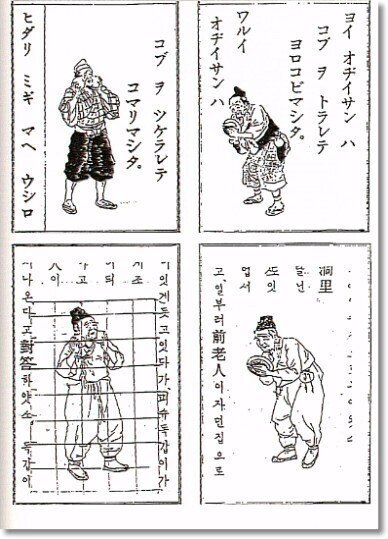 ヨイ オヂイサン ハ
コブ ヲ トラレテ
ヨロコビマシタ。
ワルイ
オヂイサン ハ
コブ ヲ ツケラレテ
コマリマシタ。
ヒダリ ミギ マヘ ウシロ
洞里
업서
고,일부러前老人이자던집으로
잇게듯고잇다가,
나온다고對答하얏소。독갑이